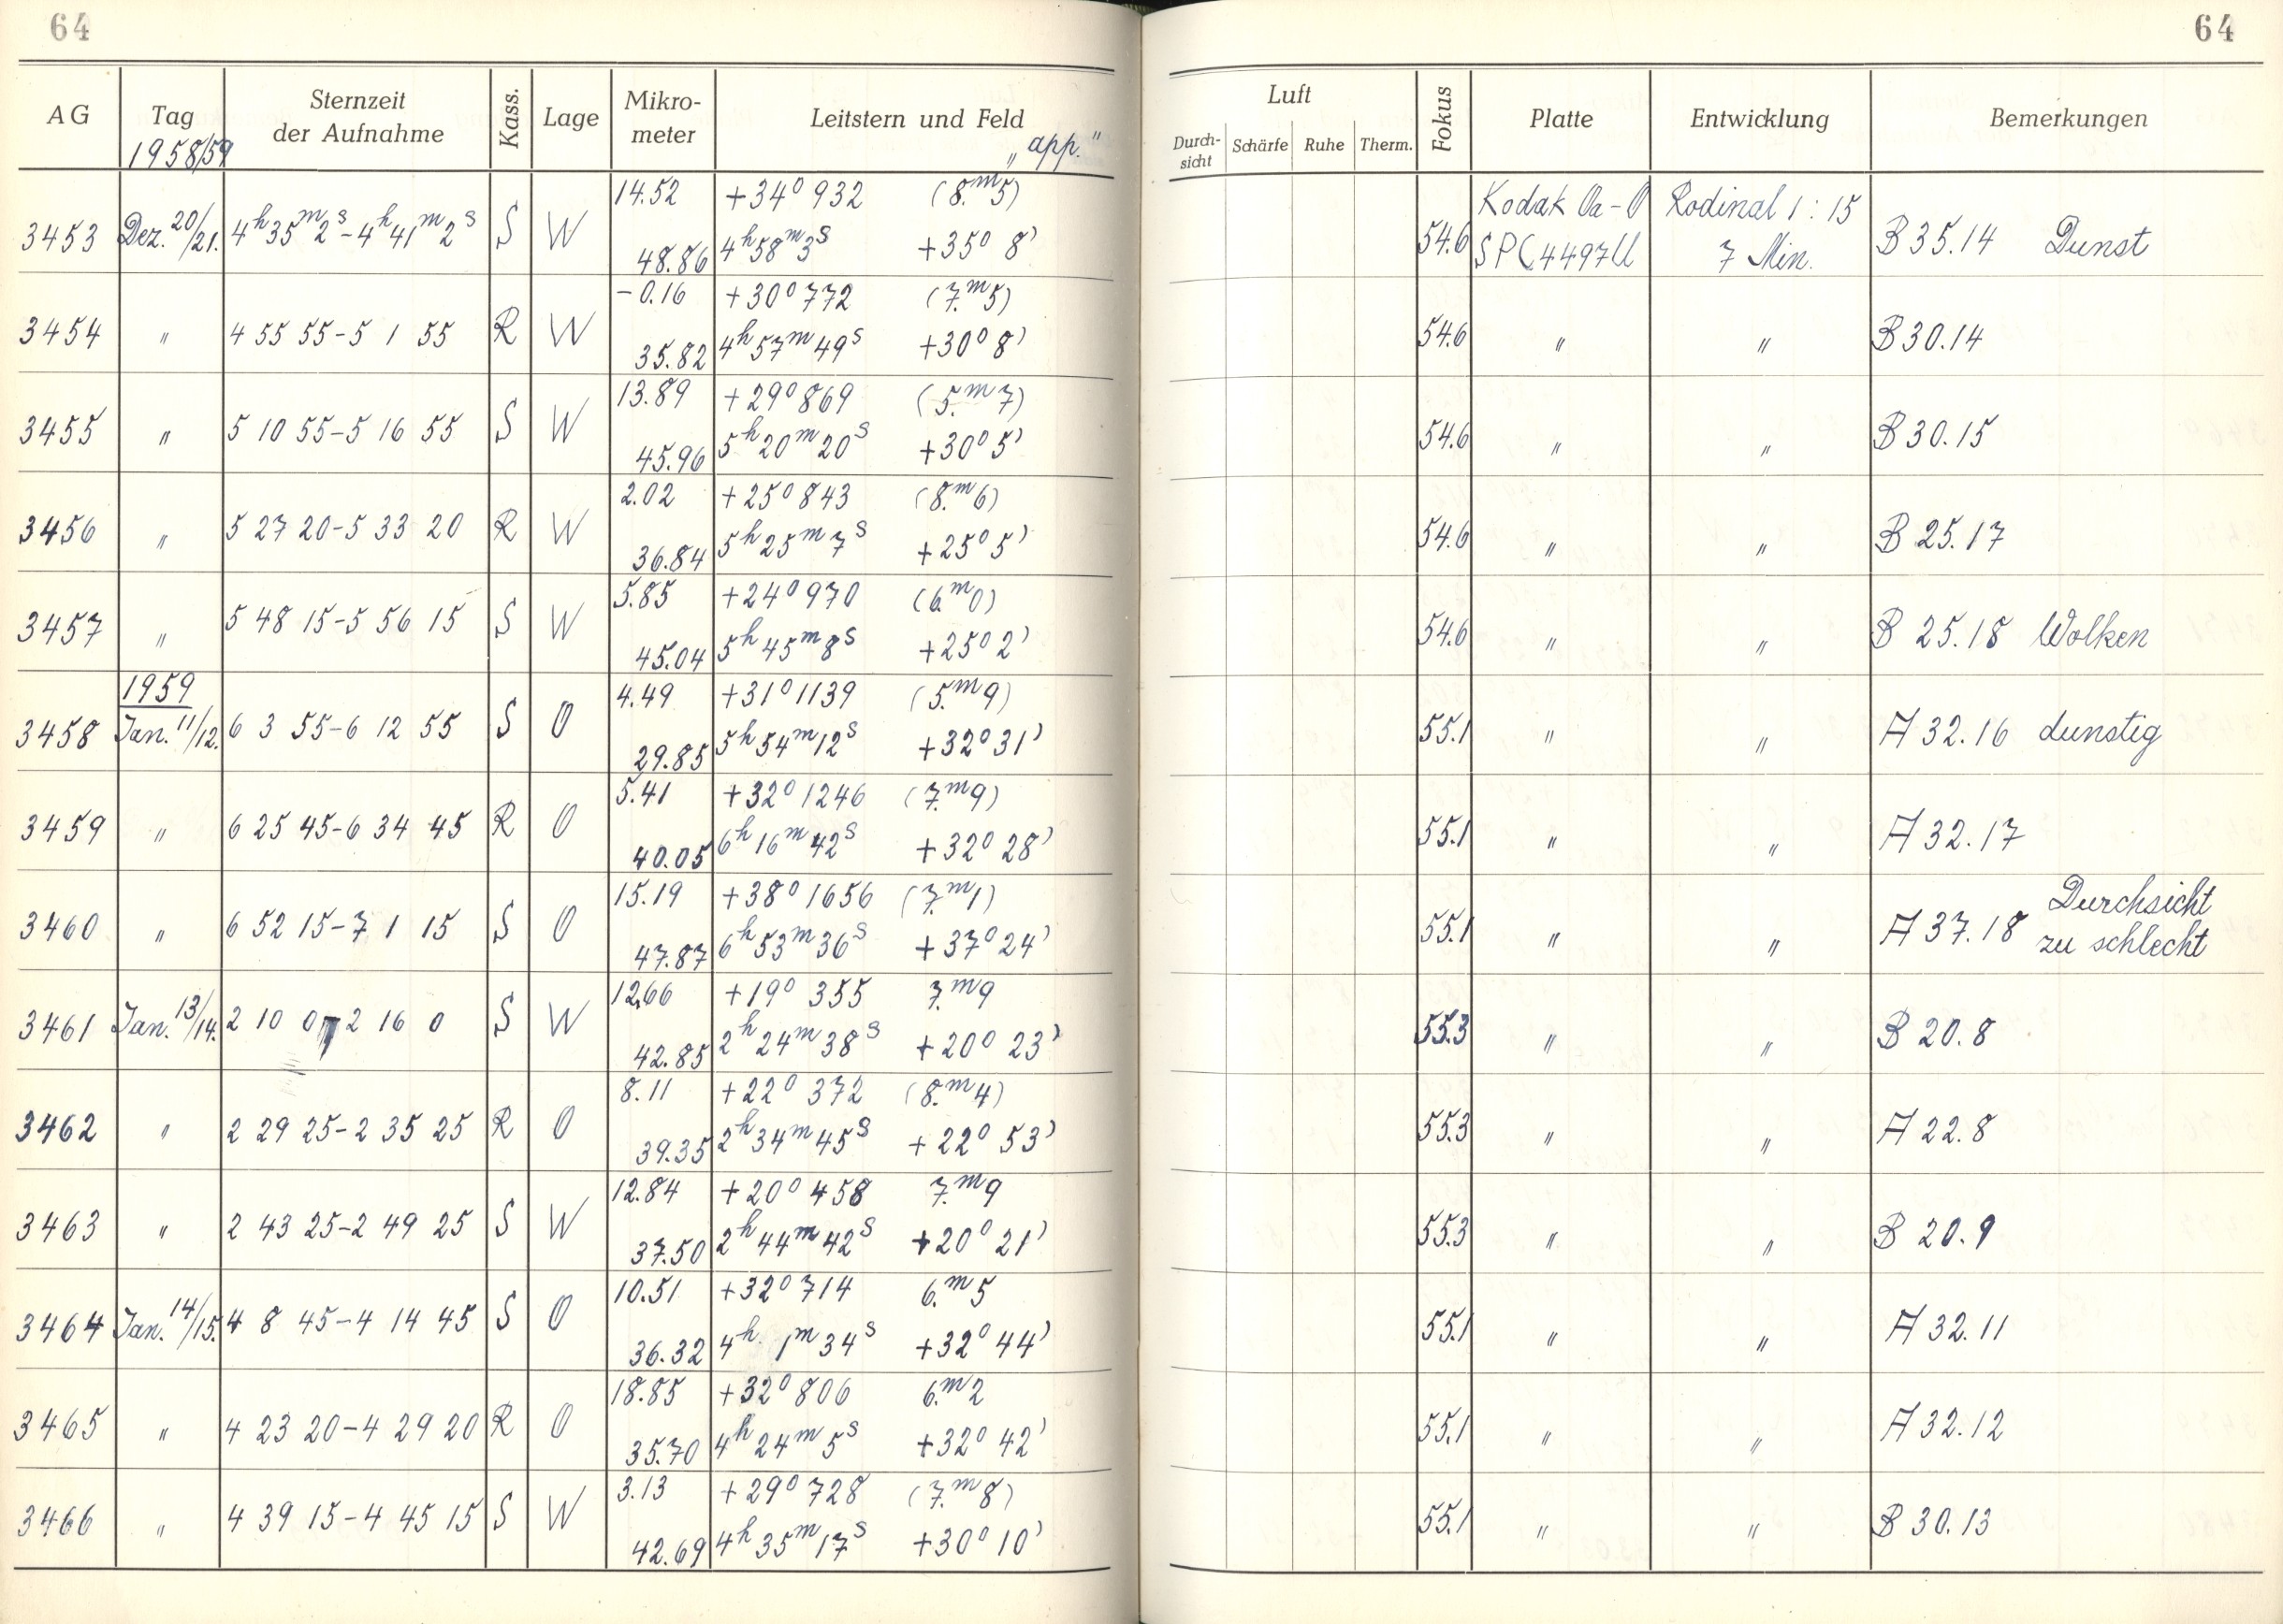 64
64
AG Tag Sternzeit der Aufnahme Kass. Lage Mikro-meter Leitstern und Feld
1958/59 „app."
Luft Fokus Platte Entwicklung Bemerkungen
Durch-sicht Schärfe Ruhe Therm.
14.52 +34° 932 (8.ᵐ5) Kodak Oa-O Rodinal 1:15
3453 Dez. 20/21. 4ʰ35ᵐ2ˢ-4ʰ41ᵐ2ˢ S W 48.86 4ʰ58ᵐ3ˢ +35° 8' 54.6 SPC4497U 7 Min. B 35.14 Dunst
-0.16 +30° 772 (7.ᵐ5)
3454 " 4 55 55-5 1 55 R W 35.82 4ʰ57ᵐ49ˢ +30° 8' 54.6 " " B 30.14
13.89 +29° 869 (5.ᵐ7)
3455 " 5 10 55-5 16 55 S W 45.96 5ʰ20ᵐ20ˢ +30° 5' 54.6 " " B 30.15
2.02 +25° 843 (8.ᵐ6)
3456 " 5 27 20-5 33 20 R W 36.84 5ʰ25ᵐ7ˢ +25° 5' 54.6 " " B 25.17
5.85 +24° 970 (6.ᵐ0)
3457 " 5 48 15-5 56 15 S W 45.04 5ʰ45ᵐ8ˢ +25° 2' 54.6 " " B 25.18 Wolken
1959 4.49 +31° 1139 (5.ᵐ9)
3458 Jan. 11/12. 6 3 55-6 12 55 S O 29.85 5ʰ54ᵐ12ˢ +32° 31' 55.1 " " A 32.16 dunstig
5.41 +32° 1246 (7.ᵐ9)
3459 " 6 25 45-6 34 45 R O 40.05 6ʰ16ᵐ42ˢ +32° 28' 55.1 " " A 32.17
15.19 +38° 1656 (7.ᵐ1) Durchsicht
3460 " 6 52 15-7 1 15 S O 47.87 6ʰ53ᵐ36ˢ +37° 24' 55.1 " " A 37.18 zu schlecht
12.66 +19° 355 7.ᵐ9
3461 Jan. 13/14. 2 10 0-2 16 0 S W 42.85 2ʰ24ᵐ38ˢ +20° 23' 55.3 " " B 20.8
8.11 +22° 372 (8.ᵐ4)
3462 " 2 29 25-2 35 25 R O 39.35 2ʰ34ᵐ45ˢ +22° 53' 55.3 " " A 22.8
12.84 +20° 458 7.ᵐ9
3463 " 2 43 25-2 49 25 S W 37.50 2ʰ44ᵐ42ˢ +20° 21' 55.3 " " B 20.9
10.51 +32° 714 6.ᵐ5
3464 Jan. 14/15. 4 8 45-4 14 45 S O 36.32 4ʰ 1ᵐ34ˢ +32° 44' 55.1 " " A 32.11
18.85 +32° 806 6.ᵐ2
3465 " 4 23 20-4 29 20 R O 35.70 4ʰ24ᵐ5ˢ +32° 42' 55.1 " " A 32.12
3.13 +29° 728 (7.ᵐ8)
3466 " 4 39 15-4 45 15 S W 42.69 4ʰ35ᵐ17ˢ +30° 10' 55.1 " " B 30.13